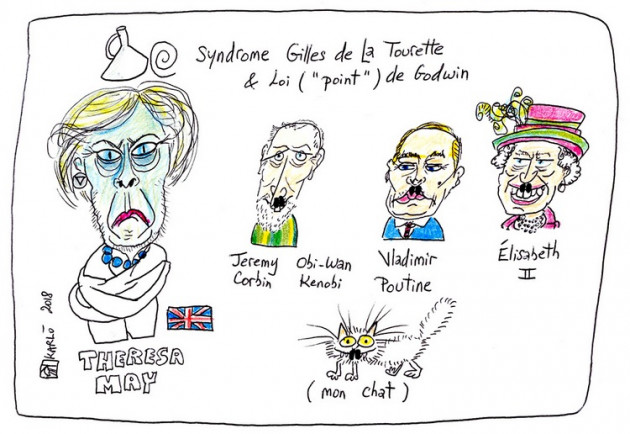 Syndrome Gilles de La Tourette
& Loi ("point") de Godwin
Jeremy Corbin
Obi-Wan Kenobi
Vladimir Poutine
Élisabeth II
KARLÖ 2018
THERESA MAY
(mon chat)